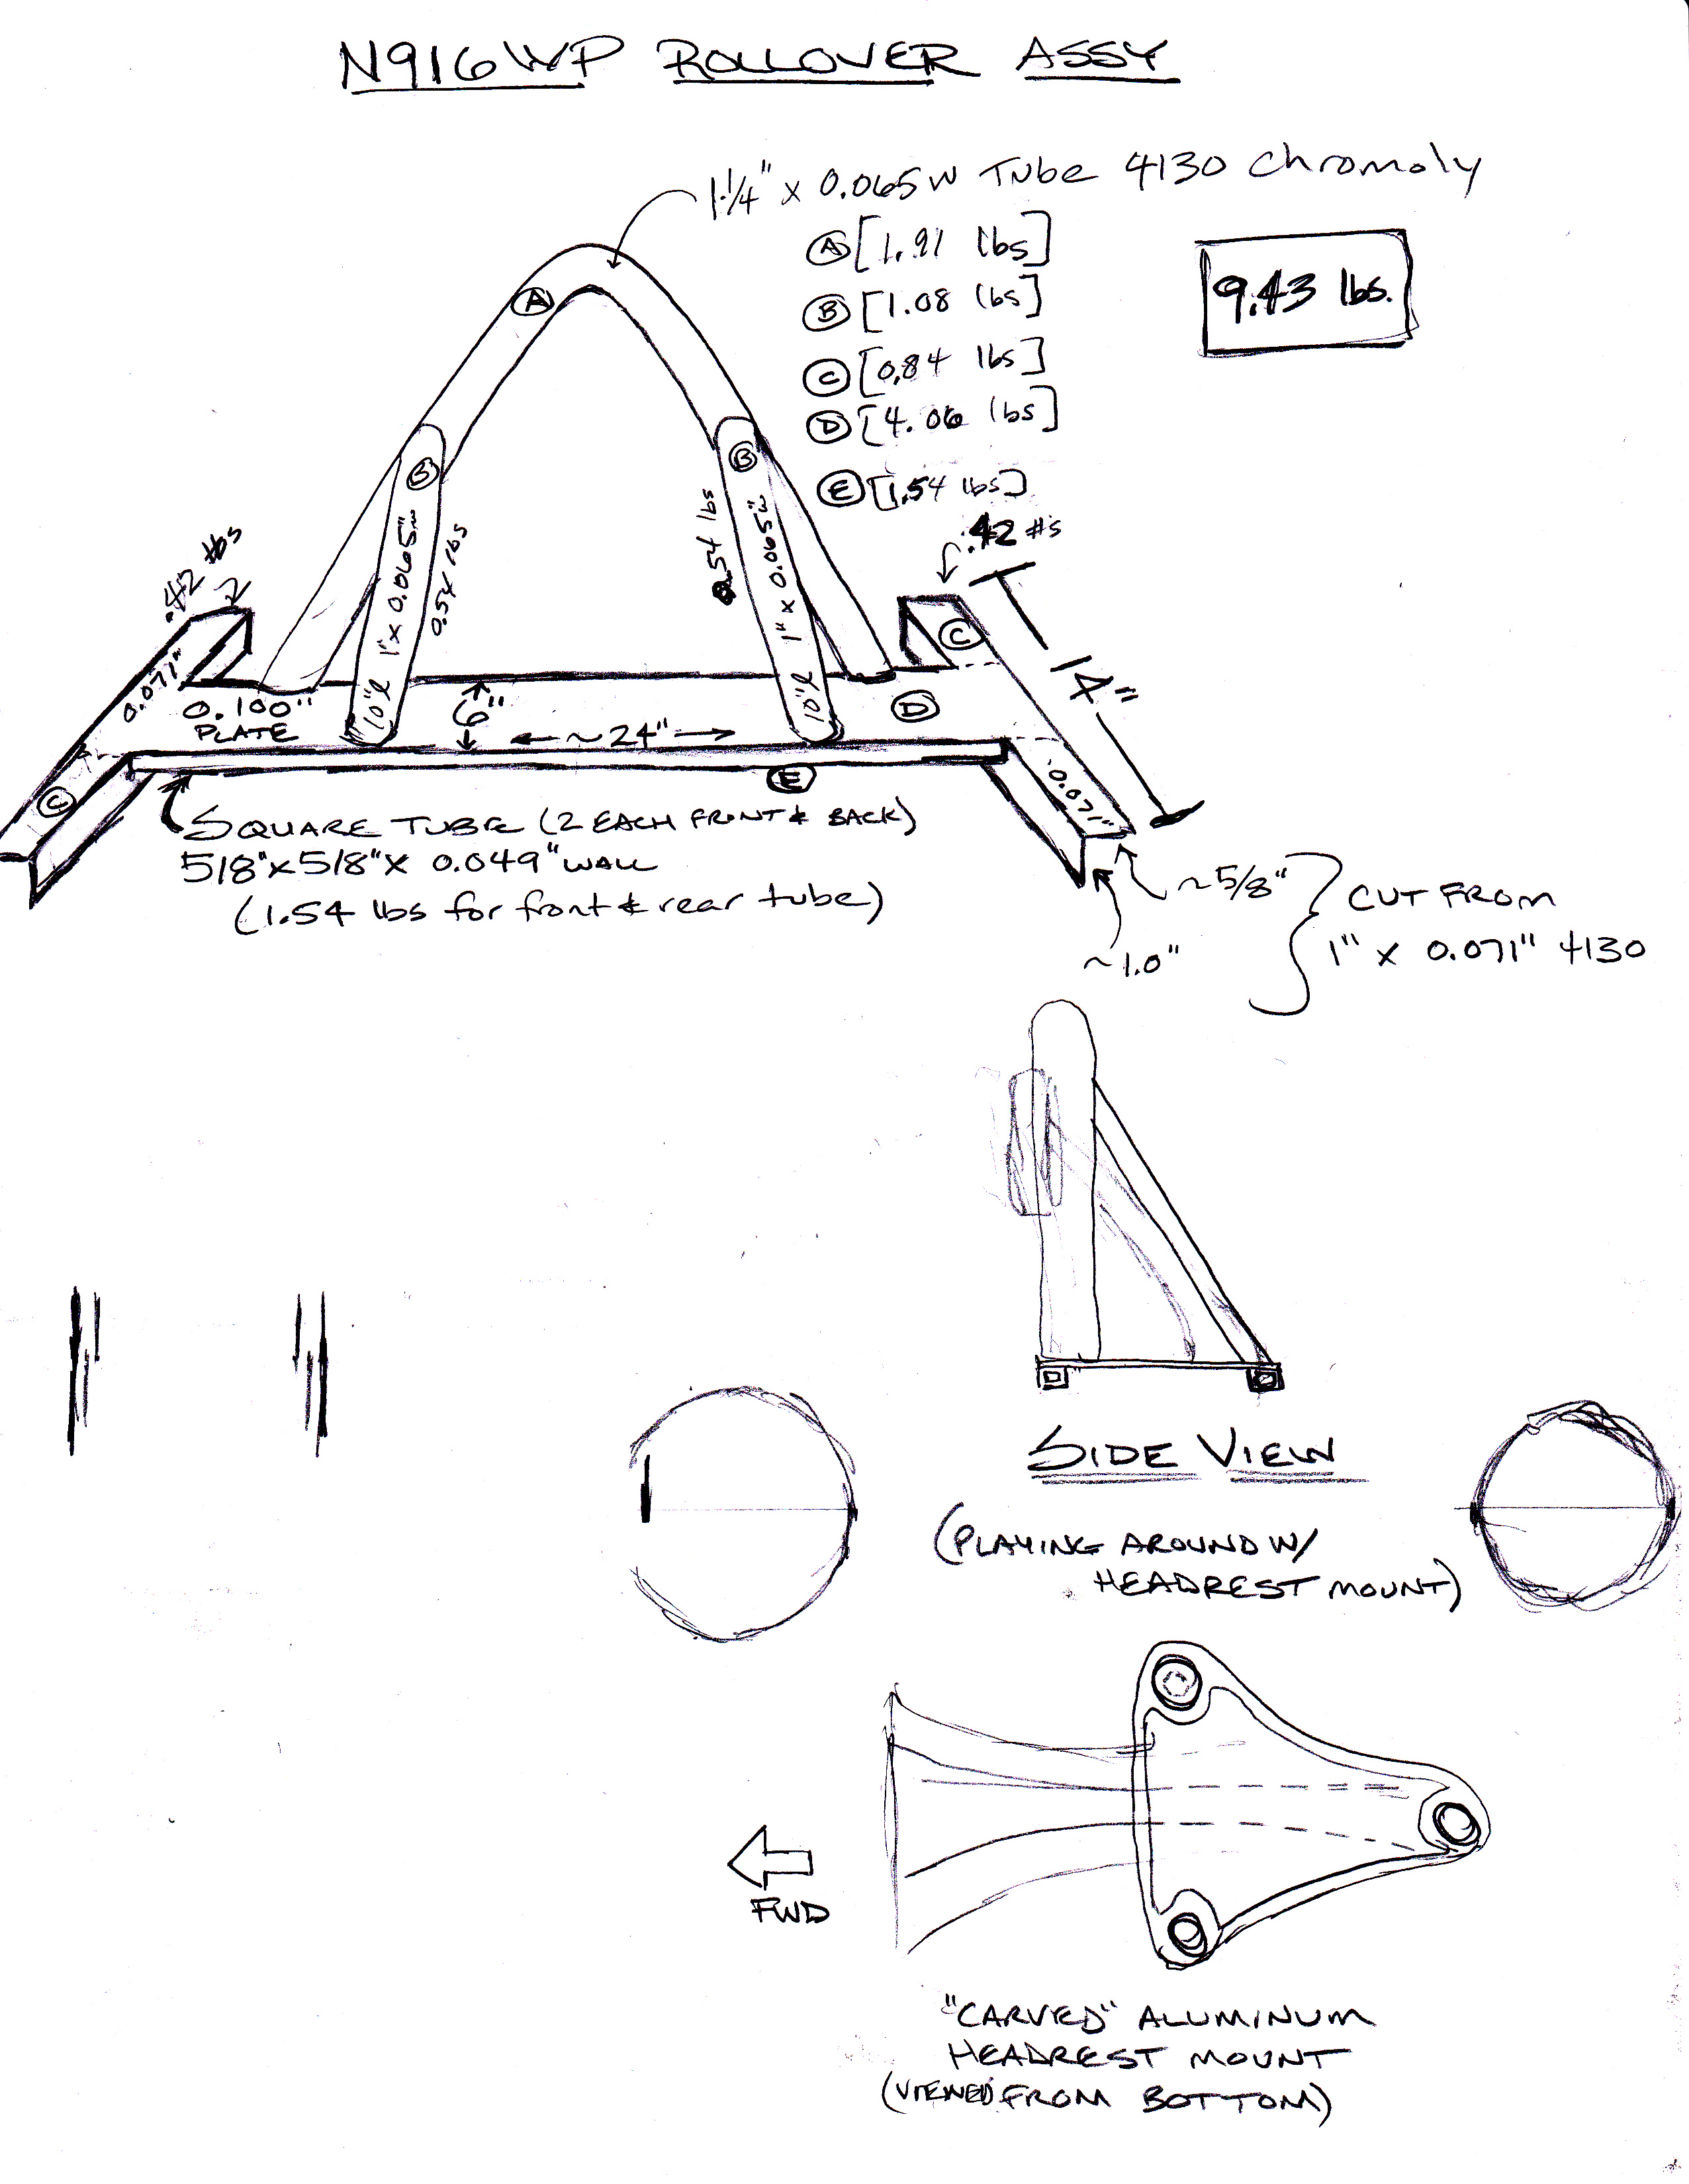 N916WP ROLLOVER ASSY
1 1/4" x 0.065W Tube 4130 Chromoly
A [1.91 lbs]
B [1.08 lbs]
C [0.84 lbs]
D [4.06 lbs]
E [1.54 lbs]
9.43 lbs.
A
B
B
1" x 0.065"w
10"l
0.54 lbs
0.54 lbs
1" x 0.065"w
10"l
.42 #s
.42 #s
C
14"
0.071"
0.100"
PLATE
6"
~24"
D
E
C
0.071"
SQUARE TUBE (2 EACH FRONT & BACK)
5/8" x 5/8" x 0.049" WALL
(1.54 lbs for front & rear tube)
~5/8"
~1.0"
CUT FROM
1" x 0.071" 4130
SIDE VIEW
(PLAYING AROUND W/
HEADREST MOUNT)
FWD
"CARVED" ALUMINUM
HEADREST MOUNT
(VIEWED FROM BOTTOM)